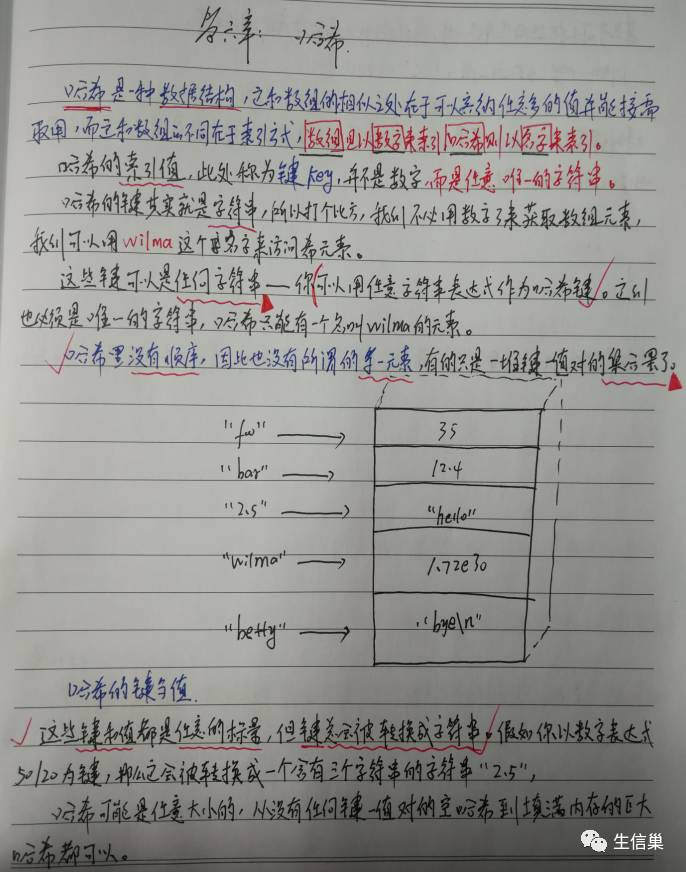 第六章: 哈希.
哈希是一种数据结构,它和数组的相似之处在于可以容纳任意多的值并能按需
取用,而它和数组的不同在于索引方式,数组是以数字来索引,哈希则以名字来索引。
哈希的索引值,此处称为键key,并不是数字,而是任意唯一的字符串。
哈希的键其实就是字符串,所以打个比方,我们不必用数字3来获取数组元素,
我们可以用wilma这个名字来访问希元素。
这些键可以是任何字符串—你可以用任意字符串表达式作为哈希键。它们
也必须是唯一的字符串,哈希只能有一个名叫wilma的元素。
哈希里没有顺序,因此也没有所谓的第一元素,有的只是一堆键—值对的集合罢了。
"foo" → 35
"bar" → 12.4
"2.5" → "hello"
"wilma" → 1.72e30
"betty" → "bye\n"
哈希的键与值.
这些键和值都是任意的标量,但键总会被转换成字符串。假如你以数字表达式
50/20为键,那么它会被转换成一个含有三个字符串的字符串"2.5",
哈希可能是任意大小的,从没有任何键—值对的空哈希到填满内存的巨大
哈希都可以。
生信巢